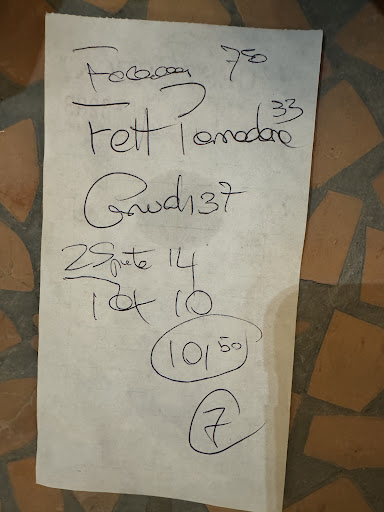 Focaccia 7 50
Fett Pomodoro 33
37
2 14
10
101 50
7